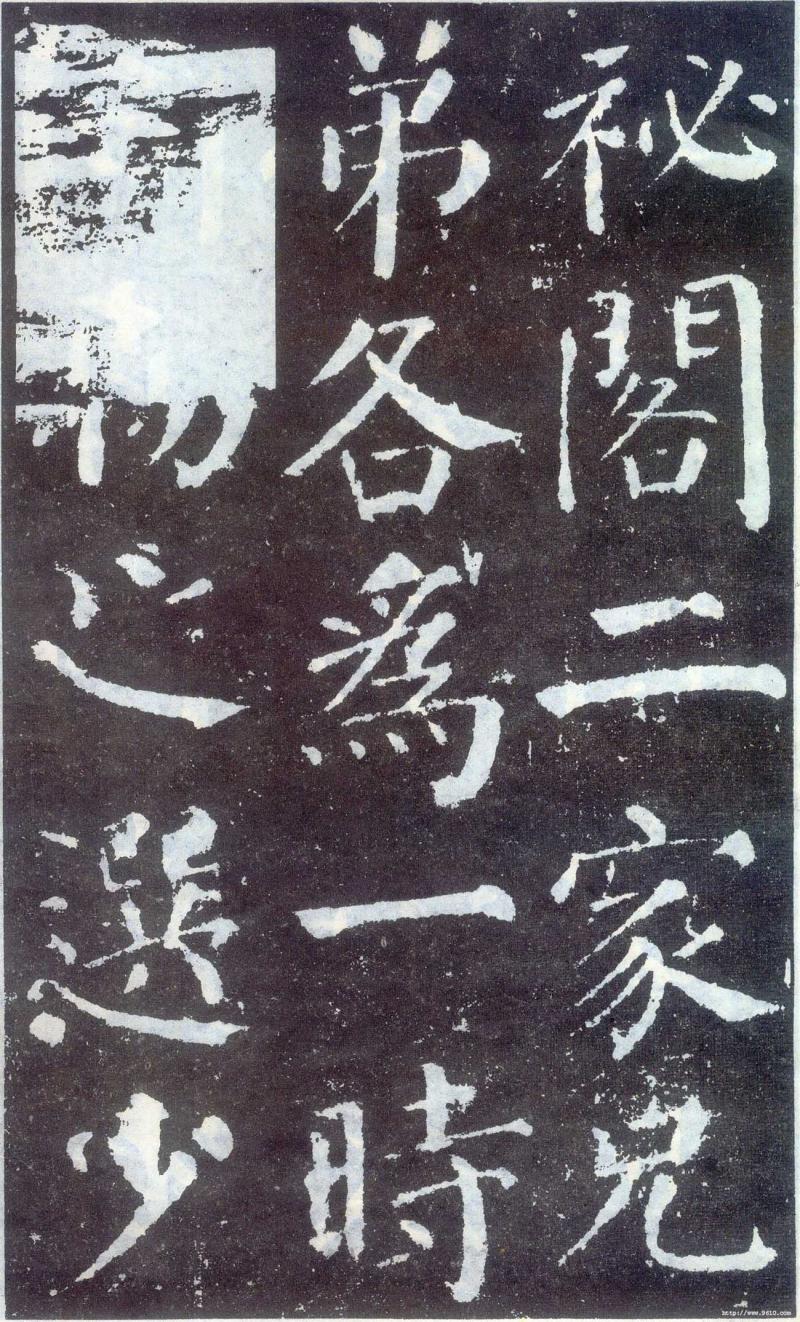 祕閣二家兄
弟各為一時
之選少
http://www.9610.com